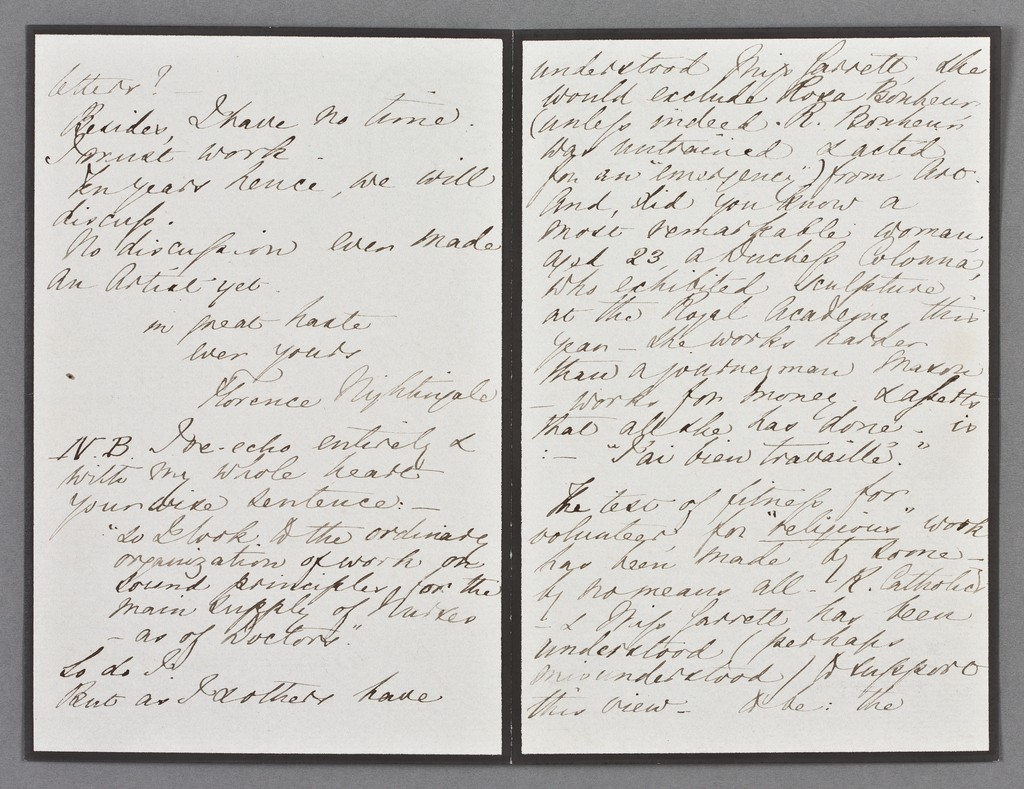 letters? —
Besides, I have no time.
I must work.
Ten years hence, we will
discuss.
No discussion ever made
an Artist yet.
in great haste
ever yours
Florence Nightingale
N.B. I re-echo entirely &
with my whole heart
your wise sentence: —
"So I look to the ordinary
organization of work on
sound principles for the
main supply of Nurses
— as of Doctors".
So do I.
But as I & others have
understood Miss Garrett, she
would exclude Rosa Bonheur,
(unless indeed R. Bonheur
was untrained & acted
for an "emergency") from Art.
And, did you know a
most remarkable woman
aged 23, a Duchess Colonna,
who exhibited sculpture
at the Royal Academy this
year — she works harder
than a journeyman Mason
— works for money. &
that all she has done - is
:— "J'ai bien travaillé."
The test of fitness for
volunteer, for "religious" work
has been made by some —
by no means all - R. Catholics
— & Miss Garrett has been
understood (perhaps
misunderstood) to support
this view — to be: the